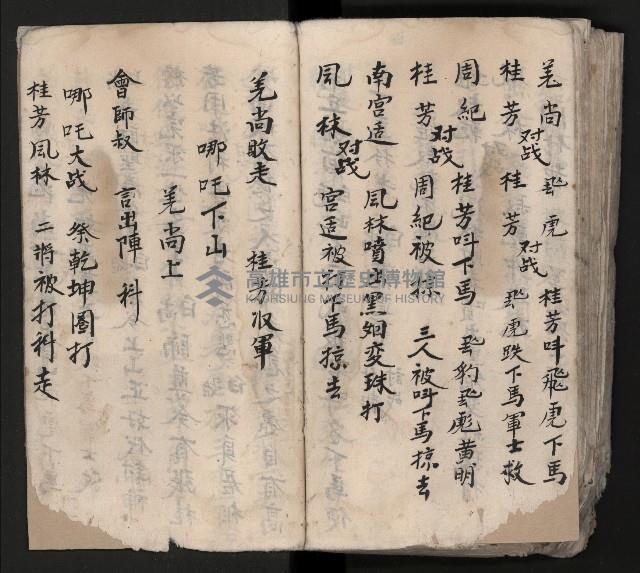 羌尚 对战 飛虎 桂芳叫飛虎下馬
桂芳 对战 桂芳 飛虎跌下馬軍士救
周紀 对战 桂芳叫下馬 飛豹飛彪黄明
桂芳 周紀被掠 三人被叫下馬掠去
南宫适 对战 風林噴出黑烟变珠打
風林 宫适被打下馬掠去
羌尚敗走 桂芳收軍
哪吒下山
羌尚上
會師叔 言出陣科
哪吒大战 祭乾坤圈打
桂芳風林 二將被打科走
高雄市立歷史博物館
KAOHSIUNG MUSEUM OF HISTORY